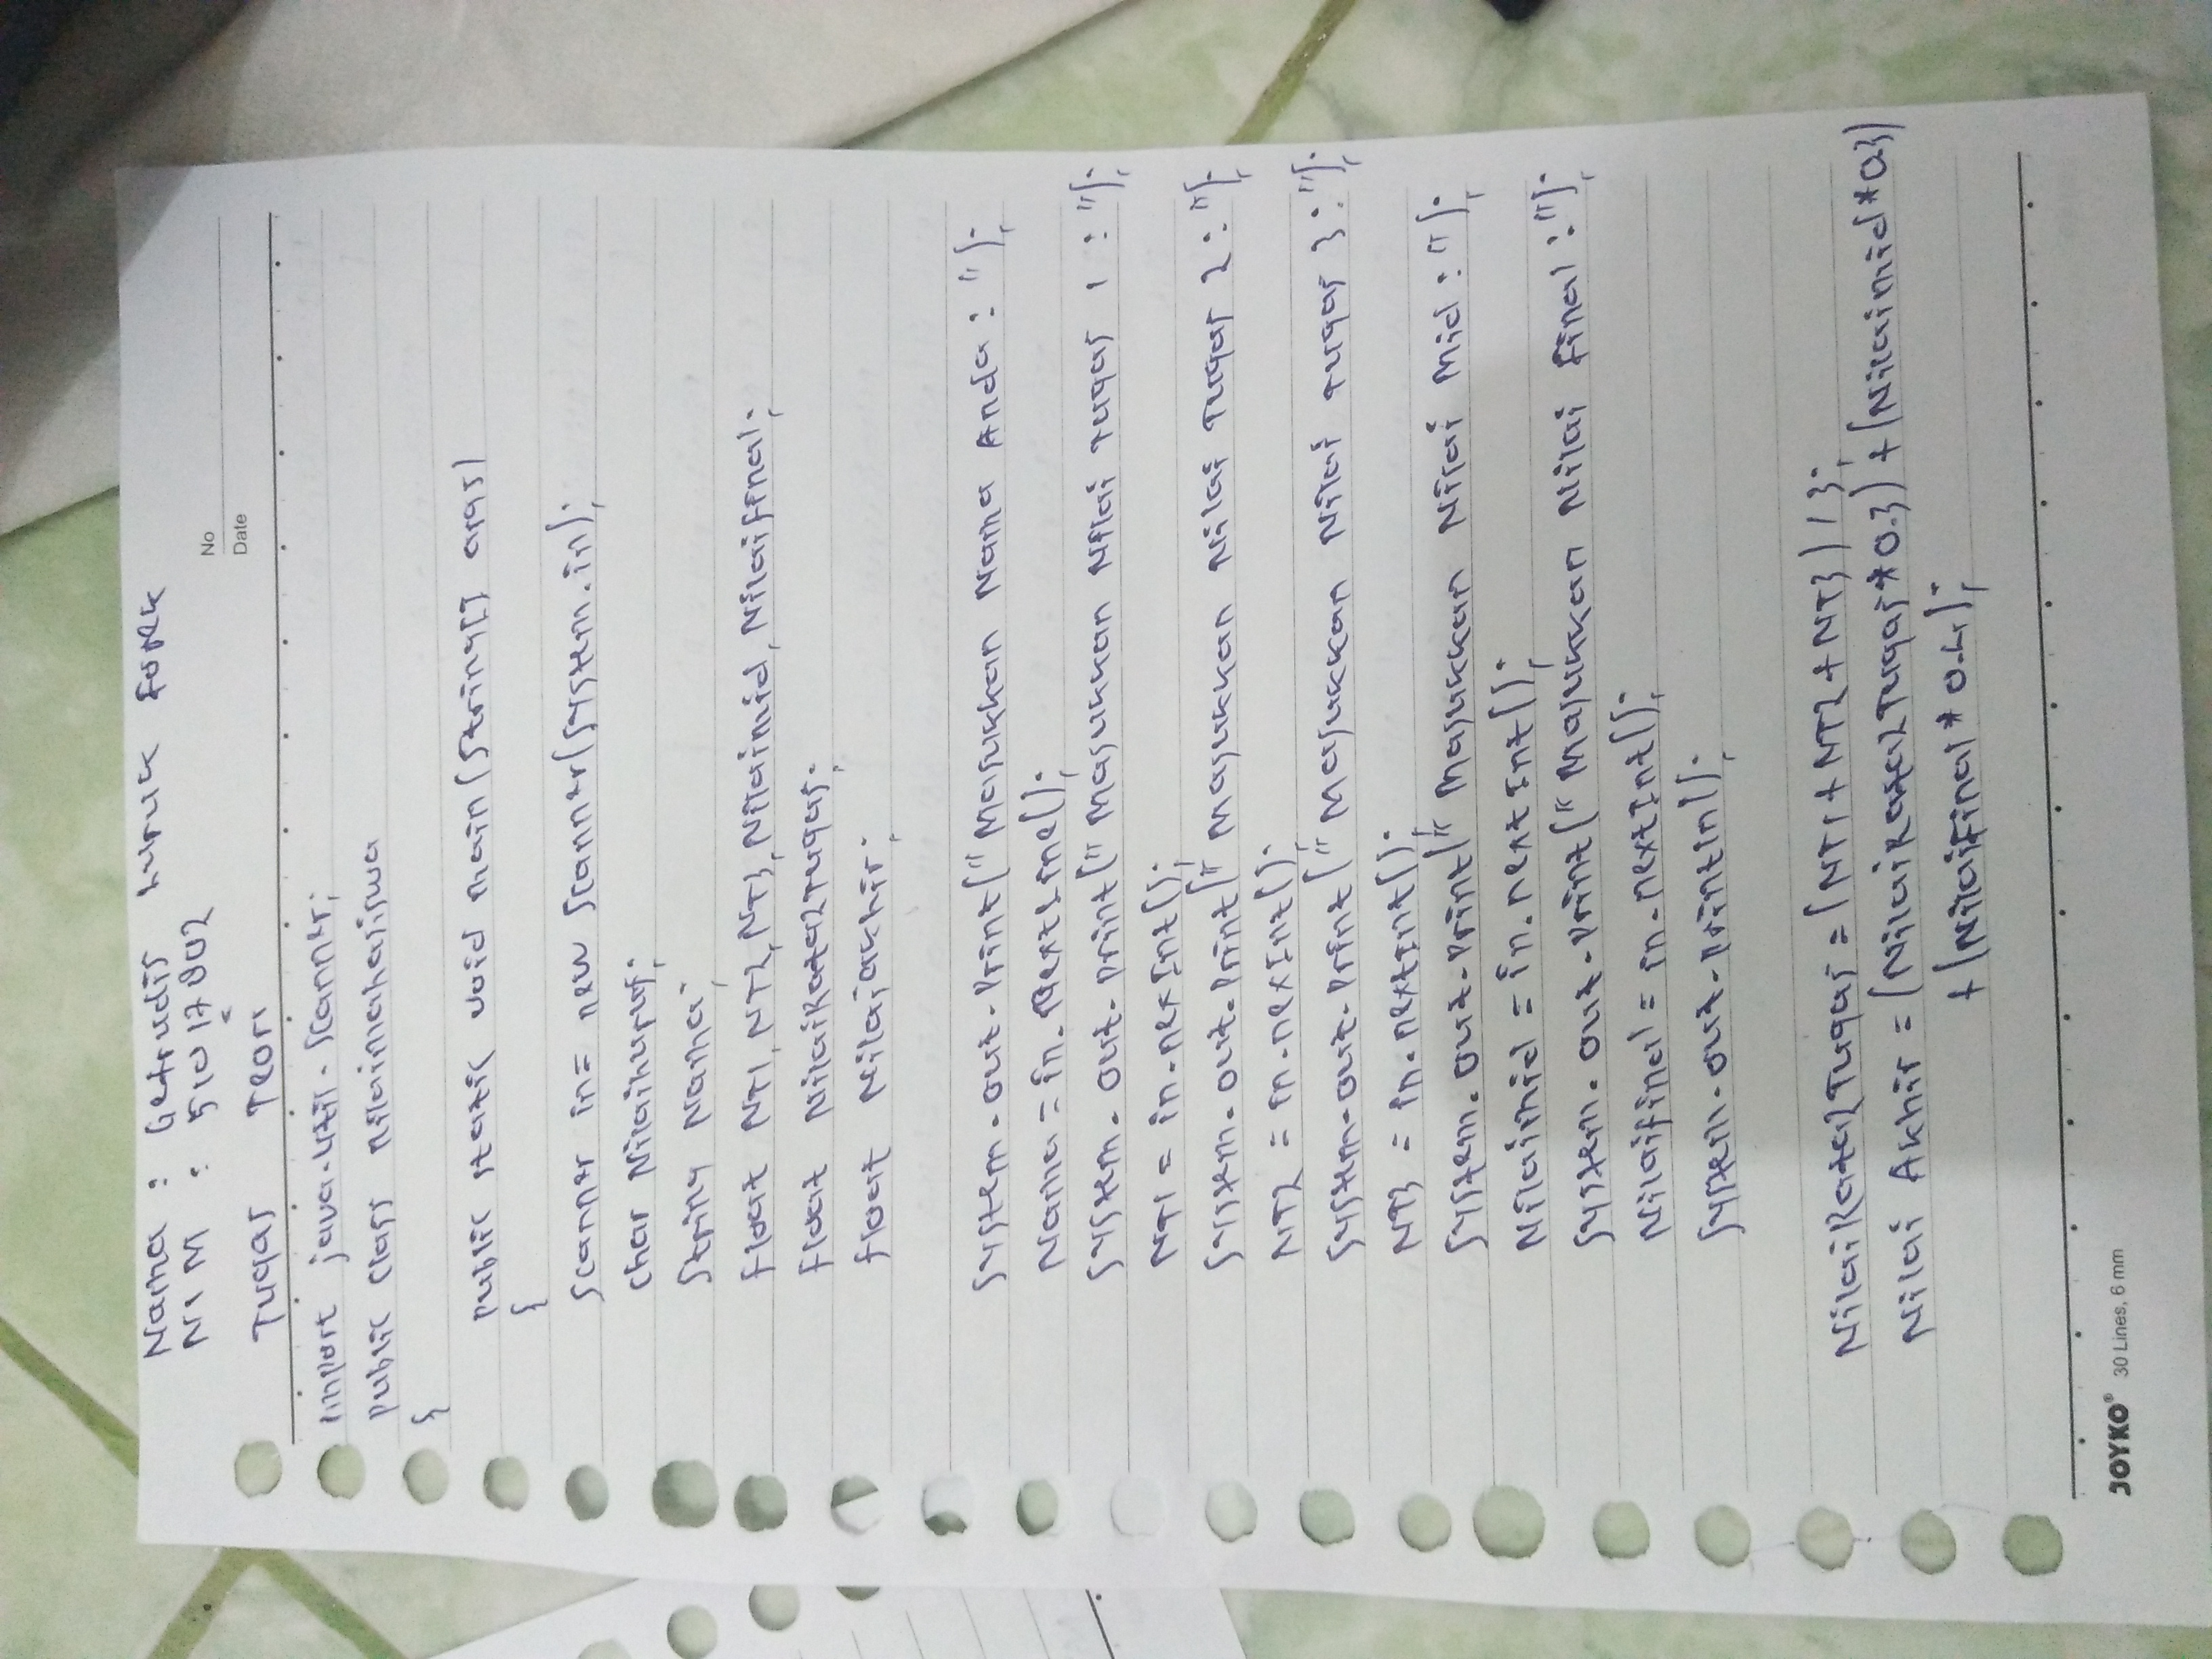 Nama : Getrudis Luruk Fork
NIM : 51017002
No
Date
Tugas Teori
import java.util.Scanner;
public class nilaimahasiswa
{
public static void main(String[] args)
{
Scanner in = new Scanner(System.in);
char Nilaihuruf;
String Nama;
float NT1, NT2, NT3, Nilaimid, Nilaifinal;
float NilaiRata2Tugas;
float NilaiAkhir;
System.out.print("Masukkan Nama Anda : ");
Nama = in.nextLine();
System.out.print("Masukkan Nilai Tugas 1 : ");
NT1 = in.nextInt();
System.out.print("Masukkan Nilai Tugas 2 : ");
NT2 = in.nextInt();
System.out.print("Masukkan Nilai Tugas 3 : ");
NT3 = in.nextInt();
System.out.print("Masukkan Nilai Mid : ");
Nilaimid = in.nextInt();
System.out.print("Masukkan Nilai Final : ");
Nilaifinal = in.nextInt();
System.out.println();
NilaiRata2Tugas = (NT1 + NT2 + NT3) / 3;
Nilai Akhir = (NilaiRata2Tugas * 0.3) + (Nilaimid * 0.3)
+ (Nilaifinal * 0.4);
JOYKO® 30 Lines, 6 mm